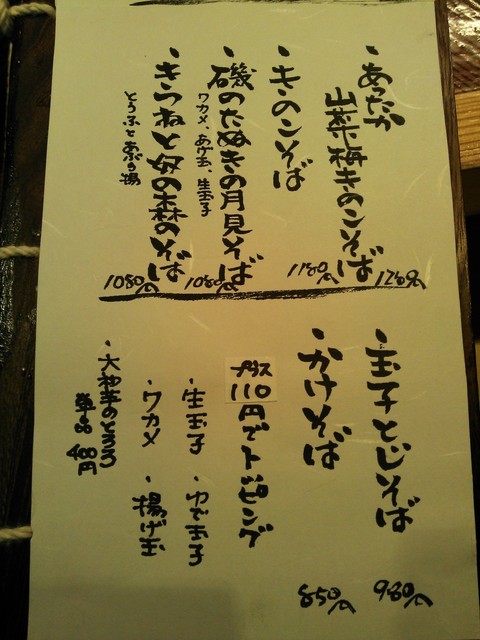 ・あったか
山菜梅きのこそば
1280円
・きのこそば
1180円
・磯のたぬきの月見そば
ワカメ、あげ玉、生玉子
1080円
・きつねと奴の森のそば
とうふとあぶら揚
1080円
・玉子とじそば
980円
・かけそば
850円
プラス
110円でトッピング
・生玉子
・ゆで玉子
・ワカメ
・揚げ玉
・大和芋のとろろ
単品 400円